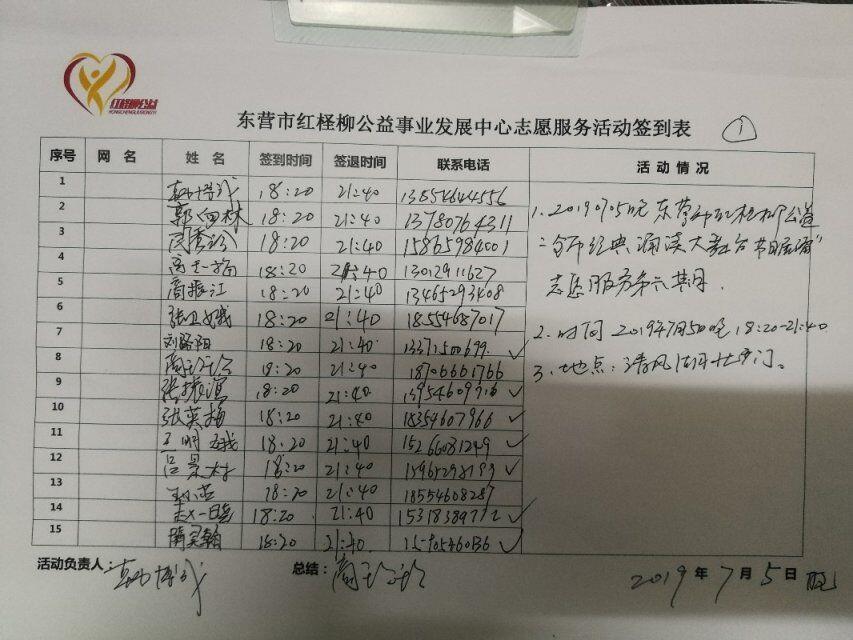 红柽柳公益
HONGCHENGLIUGONGYI
东营市红柽柳公益事业发展中心志愿服务活动签到表 ①
序号 网 名 姓 名 签到时间 签退时间 联系电话 活动情况
1 18:20 21:40 13554644556
2 郭向林 18:20 21:40 13780764311
3 闵秀玲 18:20 21:40 15865984001
4 18:20 21:40 13012911627
5 商振江 18:20 21:40 13465293408
6 张卫娥 18:20 21:40 18554687017
7 刘路阳 18:20 21:40 13371500699 ✓
8 商玲玲 18:20 21:40 18706661766
9 张振滨 18:20 21:40 13954609716 ✓
10 张英梅 18:20 21:40 18354607966 ✓
11 王明娥 18:20 21:40 15266081249 ✓
12 吕景村 18:20 21:40 ✓
13 18:20 21:40 18554608287
14 赵一 18:20 21:40 15318389712 ✓
15 隋昊翰 18:20 21:40 ✓
1. 20190705晚 东营市红柽柳公益
志愿服务第六期.
2. 时间 2019年7月5日晚 18:20-21:40
3. 地点:清风湖
活动负责人: 总结: 商玲玲 2019年7月5日 晚